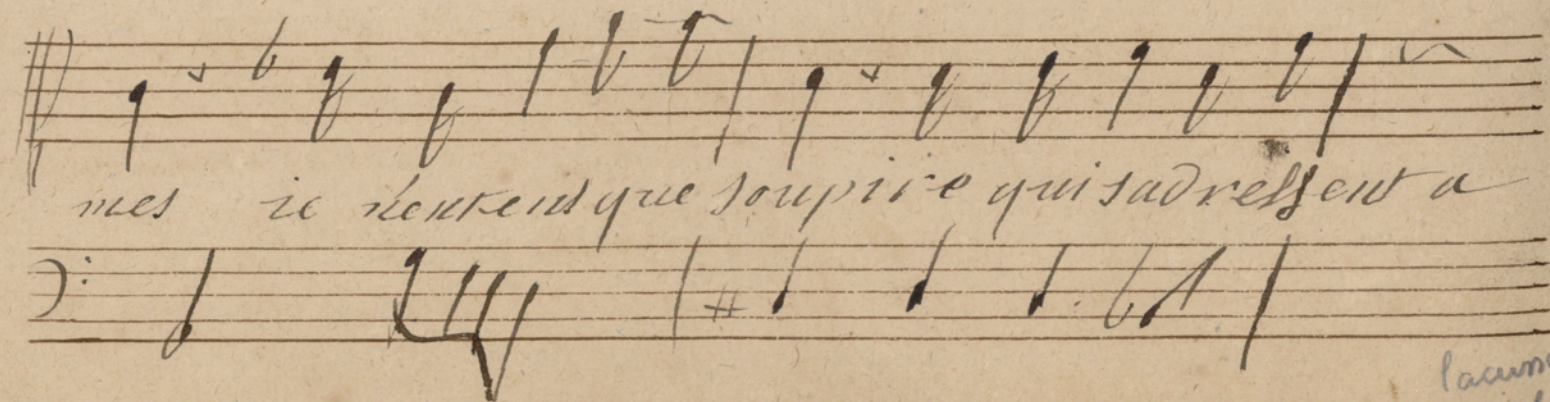 mes ie n'entens que soupire qui sadressent a